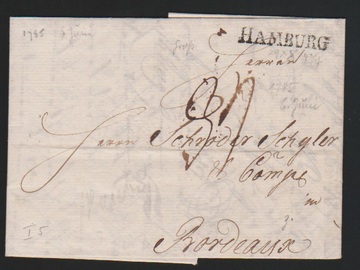 1785 6 Juni
HAMBURG
Herren
Herrn Schröder Schyler
& Compe
in
Bordeaux
I 5